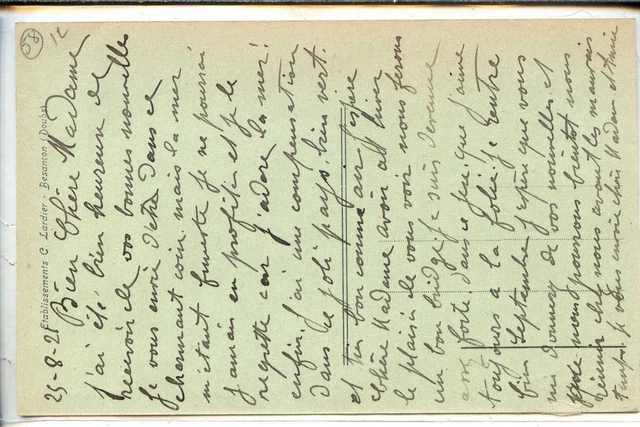 25-8-21
Bien Chère Madame
j'ai été bien heureux de
recevoir de vos bonnes nouvelles
je vous envie d'être dans ce
charmant coin. mais la mer
m'étant funeste je ne pourrai
jamais en profiter et je le
regrette car j'adore la mer!
enfin j'ai une compensation
dans ce joli pays bien vert.
et un bon comme air j'espère
Chère Madame avoir cet hiver
le plaisir de vous voir nous ferons
un bon bridge je suis devenue
assez forte dans ce jeu que j'aime
toujours à la folie je rentre
fin Septembre j'espère que vous
me donnerez de vos nouvelles et
que nous pourrons bientôt nous
réunir chez nous avant les mauvais
temps. je vous envoie chère Madame et amie
Etablissements C. Lardier - Besançon (Doubs)